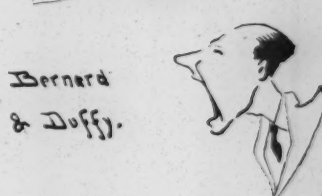 Bernard
& Duffy.